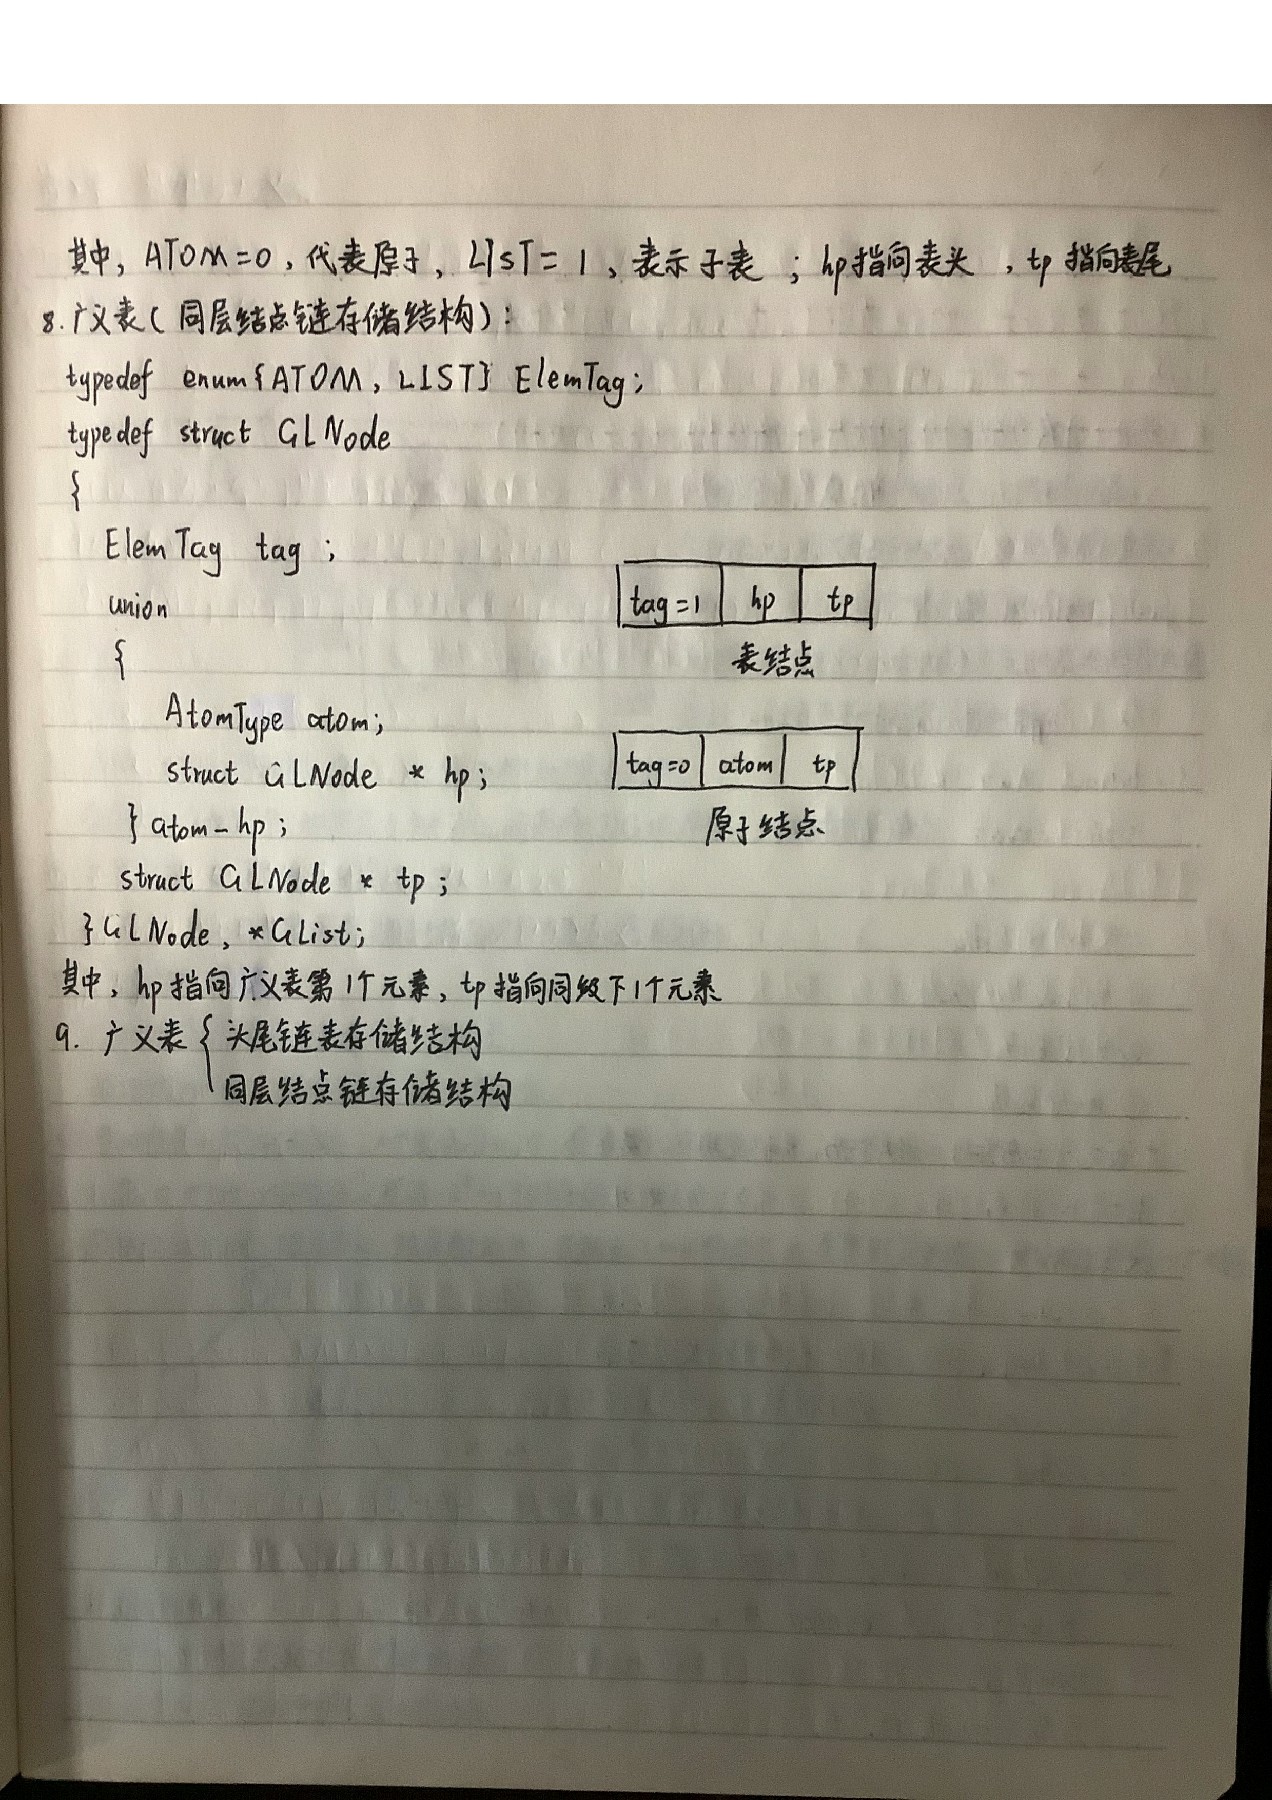 其中, ATOM=0, 代表原子, LIST=1, 表示子表 ; hp指向表头 , tp 指向表尾
8. 广义表( 同层结点链存储结构):
typedef enum{ATOM, LIST} ElemTag;
typedef struct GLNode
{
ElemTag tag ;
union
{
AtomType atom;
struct GLNode * hp;
} atom-hp;
struct GLNode * tp;
} GLNode, *GList;
tag=1 hp tp
表结点
tag=0 atom tp
原子结点
其中, hp指向广义表第1个元素, tp指向同级下1个元素
9. 广义表 { 头尾链表存储结构
同层结点链存储结构